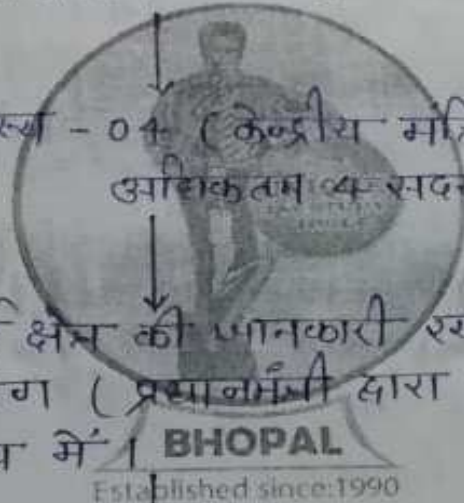 स्य - 04 (केन्द्रीय मंत्रि
अधिकतम 4 सदस
क्षेत्र की जानकारी रख
ग (प्रधानमंत्री द्वारा
य में।
BHOPAL
Established since:1990